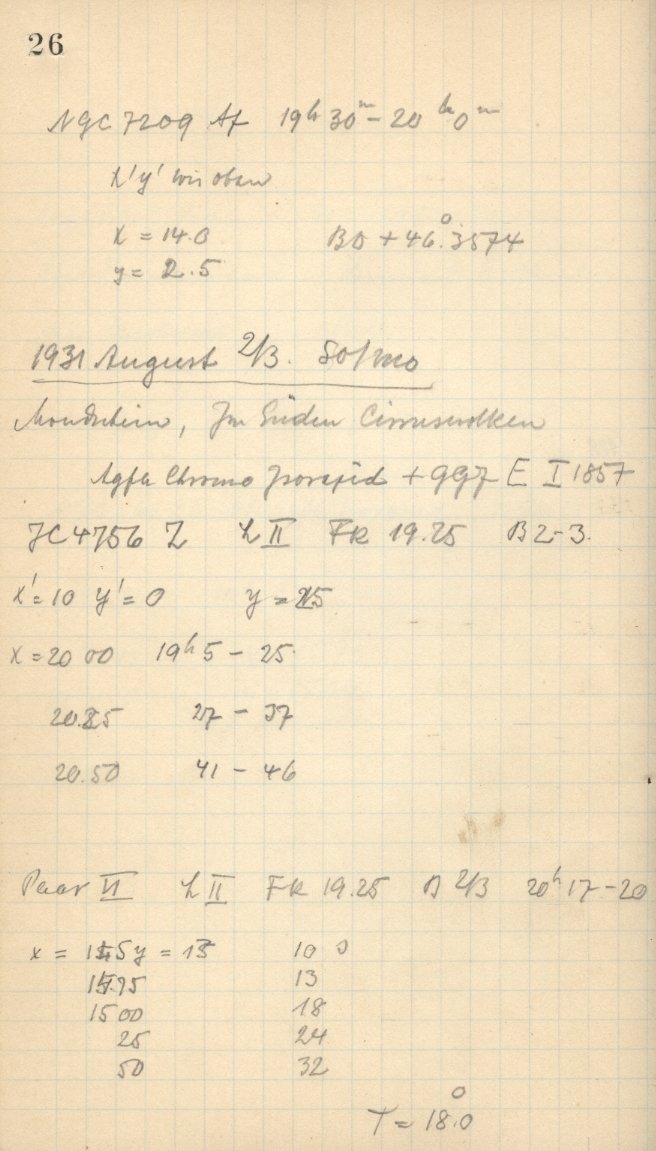 26
NGC 7209 Af 19h 30m - 20h 0m
x'y' wie oben
x = 14.0 BD + 46°.3574
y = 2.5
1931 August 2/3. So/Mo
Mondschein, Im Süden Cirruswolken
Agfa Chromo Isorapid + 997 E I 1857
JC 4756 Z L II FR 19.25 B 2-3.
x' = 10 y' = 0 y = 25
x = 20 00 19h 5 - 25
20.25 27 - 37
20.50 41 - 46
Paar VI L II FR 19.25 B 2/3 20h 17 - 20
x = 5 y = 10 s
13
15 00 18
25 24
50 32
T = 18°.0